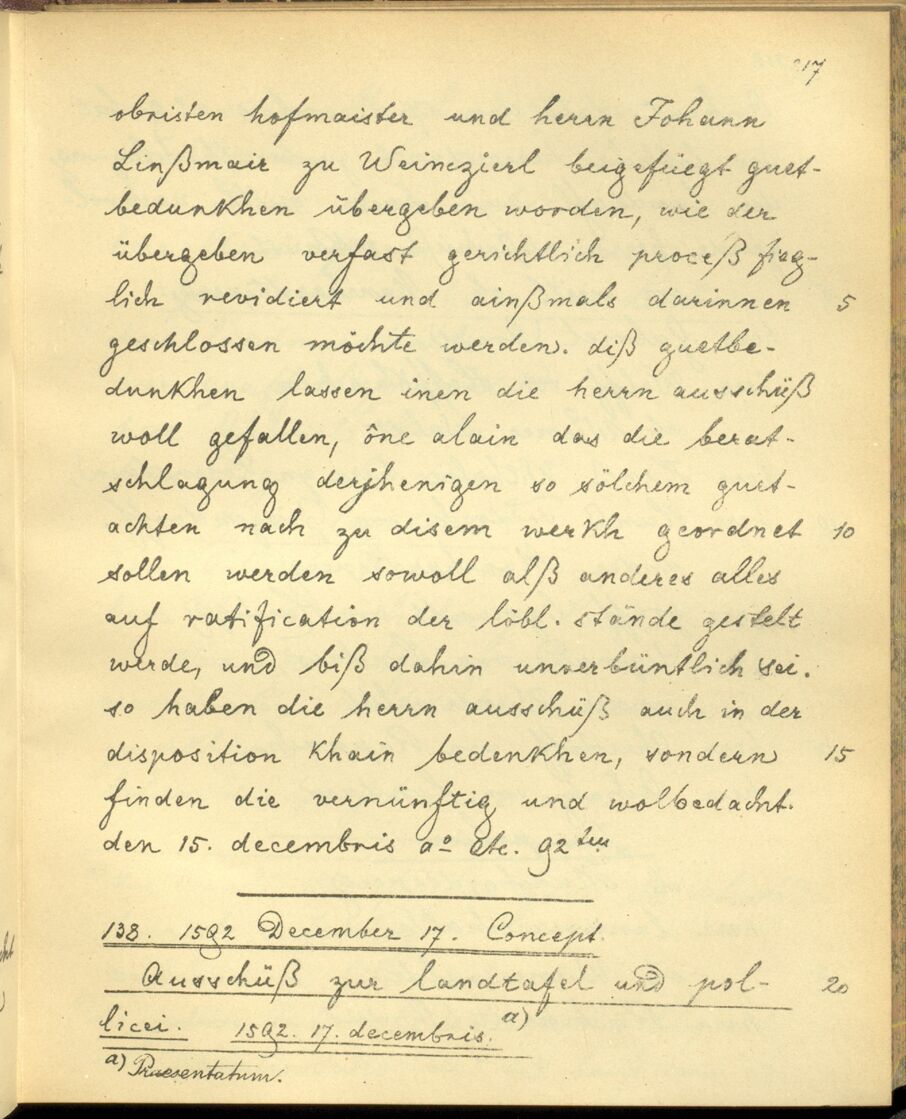 17
obristen hofmaister und herrn Johann
Linßmair zu Weinczierl beigefüegt guet-
bedunkhen übergeben worden, wie der
übergeben verfast gerichtlich proceß füeg-
lich revidiert und ainßmals darinnen 5
geschlossen möchte werden. diß guetbe-
dunkhen lassen inen die herrn ausschüß
woll gefallen, óne alain das die berat-
schlagung derjhenigen so sölchem guet-
achten nach zu disem werkh geordnet 10
sollen werden sowoll alß anderes alles
auf ratification der löbl. stände gestelt
werde, und biß dahin unverbüntlich sei.
so haben die herrn ausschüß auch in der
disposition khain bedenkhen, sondern 15
finden die vernünftig und wolbedacht.
den 15. decembris aº etc. 92ten
138. 1592 December 17. Concept.
Ausschüß zur landtafel und pol- 20
licei. 1592. 17. decembris. a)
a) Praesentatum.